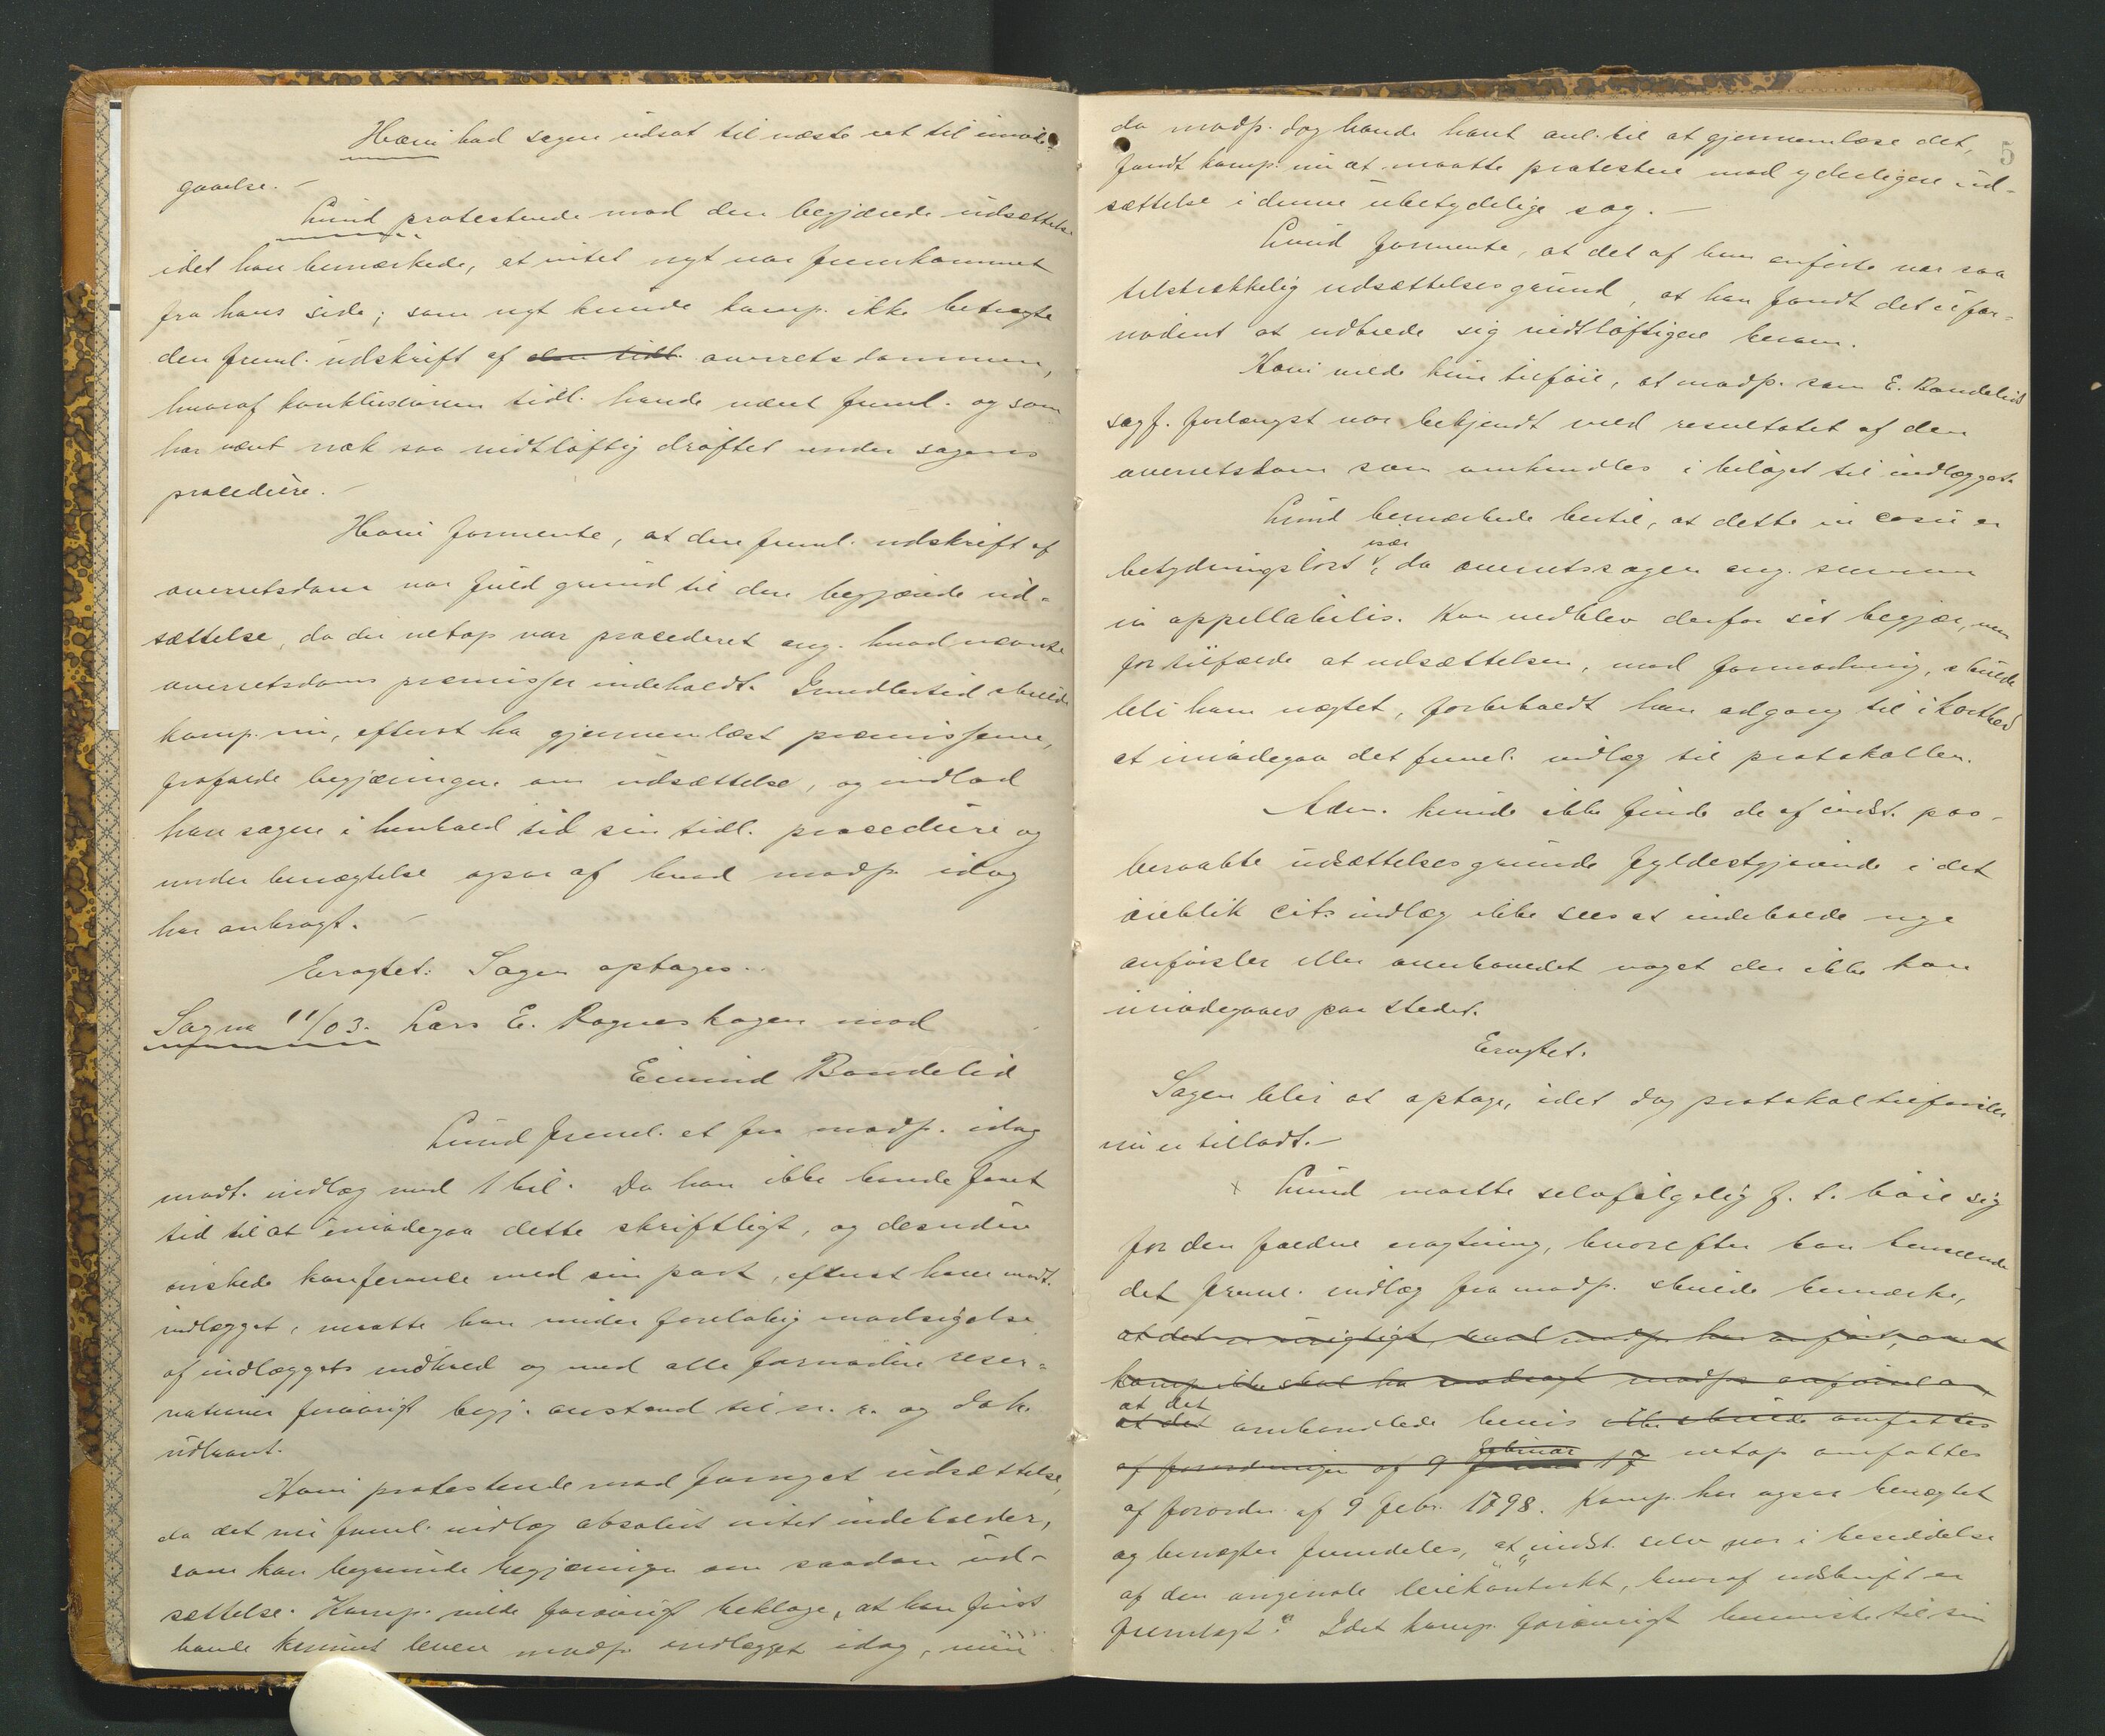 Hæni bad sagen udsat til næste ret til imøde-
gaaelse. –
Lund protesterede mod den begjærede udsættelse
idet han bemærkede, at intet nyt var fremkommet
fra hans side; som nyt kunde komp. ikke betragte
den freml. udskrift af den tidl. overretsdommen,
hvoraf konklusionen tidl. havde været freml. og som
har været nok saa vidtløftig drøftet under sagens
procedüre. –
Hæni formente, at den freml. udskrift af
overretsdom var fuld grund til den begjærede ud-
sættelse, da der netop var procederet ang. hvad nævnte
overretsdoms præmisser indeholdt. Imidlertid skulde
komp. nu, efterat ha gjennemlæst præmisserne,
frafalde begjæringen om udsættelse, og indlod
han sagen i henhold til sin tidl. procedüre og
under benægtelse ogsaa af hvad modp. idag
har anbragt. –
Eragtet: Sagen optages.
Sag no 11/03. Lars E. Rogneskogen mod
Eivind Bondelid
Lund freml. et fra modp. idag
modt. indlæg med 1 bil. Da han ikke havde faaet
tid til at imødegaa dette skriftligt, og desuden
ønskede konferance med sin part, efterat have modt.
indlægget, maatte han under foreløbig modsigelse
af indlæggets indhold og med alle fornødne reser-
vationer forøvrigt begj. anstand til n. r. og dok.
udlaant.
Hæni protesterede mod forlanget udsættelse,
da det nu freml. indlæg absolut intet indeholder,
som kan begrunde begjæringen om saadan ud-
sættelse. Komp. vilde forøvrigt beklage, at han først
havde kunnet levere modp. indlægget idag, men
5
da modp. dog havde havt anl. til at gjennemlæse det,
fandt komp. nu at maatte protestere mod yderligere ud-
sættelse i denne ubetydelige sag. –
Lund formente, at det af ham anførte var saa
tilstrækkelig udsættelsesgrund, at han fandt det ufor-
nødent at udbrede sig vidtløftigere herom.
Hæni vilde kun tilføie, at modp. som E. Bondelids
sagf. forlængst var bekjendt med resultatet af den
overretsdom som omhandles i bilaget til indlægget.
Lund bemærkede hertil, at dette in casu er
betydningsløst, især da overretssagen ang. summen
in appellabilis. Han vedblev derfor sit begjær, men
for tilfælde at udsættelsen, mod formodning, skulde
bli ham nægtet, forbeholdt han adgang til i korthed
at imødegaa det freml. indlæg til protokollen.
Adm. kunde ikke finde de af indst. paa-
beraabte udsættelsesgrunde fyldestgjørende i det
øieblik cits indlæg ikke sees at indeholde nye
anførsler eller overhovedet noget der ikke kan
imødegaaes paa stedet.
Eragtet.
Sagen blir at optage, idet dog protokoltilførsler
nu er tilladt. –
x Lund maatte selvfølgelig f. t. bøie sig
for den faldne eragtning, hvorefter han henseende
det freml. indlæg fra modp. skulde bemærke,
at det er urigtigt, hvad modp. har anført, om at
komp. ikke skal ha modsagt modps anførsel om
at det
at det omhandlede bevis ikke skulde omfattes
af forordningen af 9 februar 17 netop omfattes
af forordn. af 9 febr. 1798. Komp. har ogsaa benægtet
og benægter fremdeles, at "indst. selv var i besiddelse
af den originale leiekontrakt, hvoraf udskrift er
fremlagt." Idet komp. forøvrigt henviste til sin